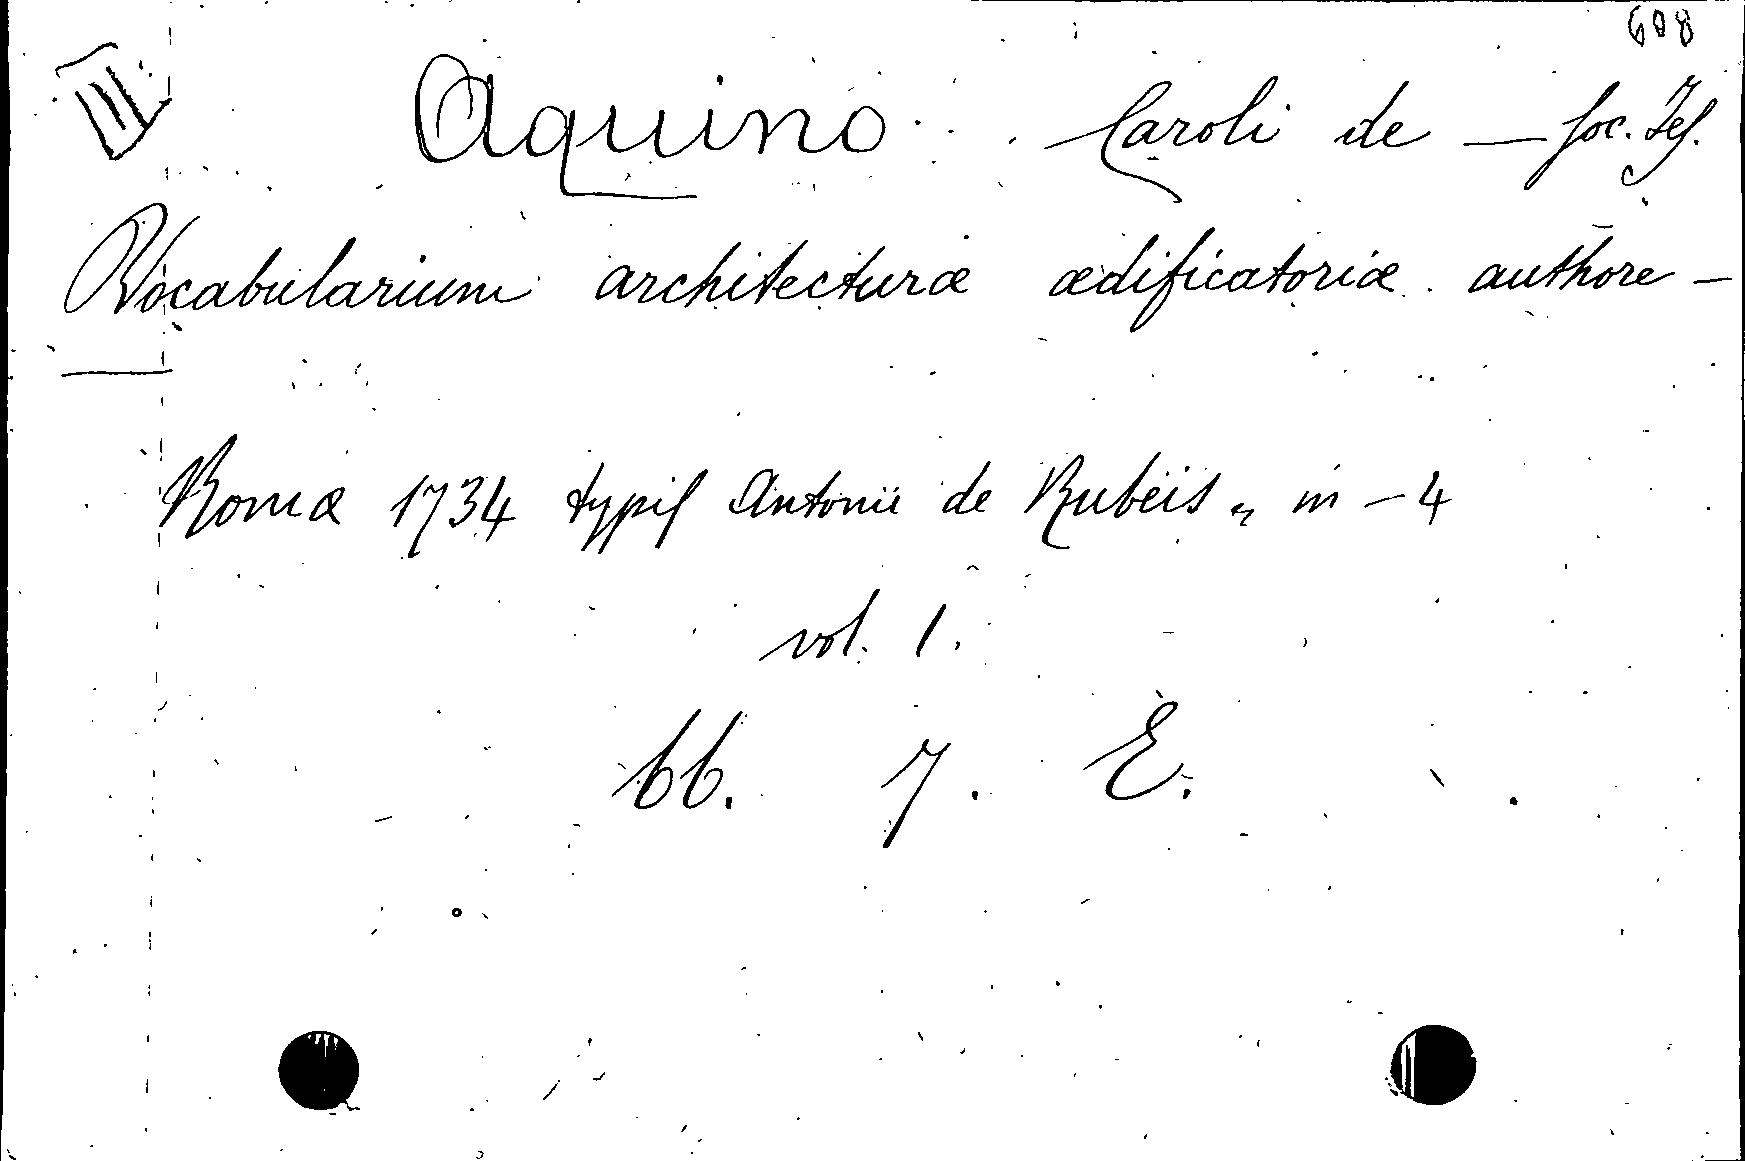 608
III Aquino Caroli de — Soc. Jes.
Vocabularium architecturæ ædificatoriæ authore —
—
Romæ 1734 typis Antonii de Rubeis, in-4
vol. 1.
66. 7. E.